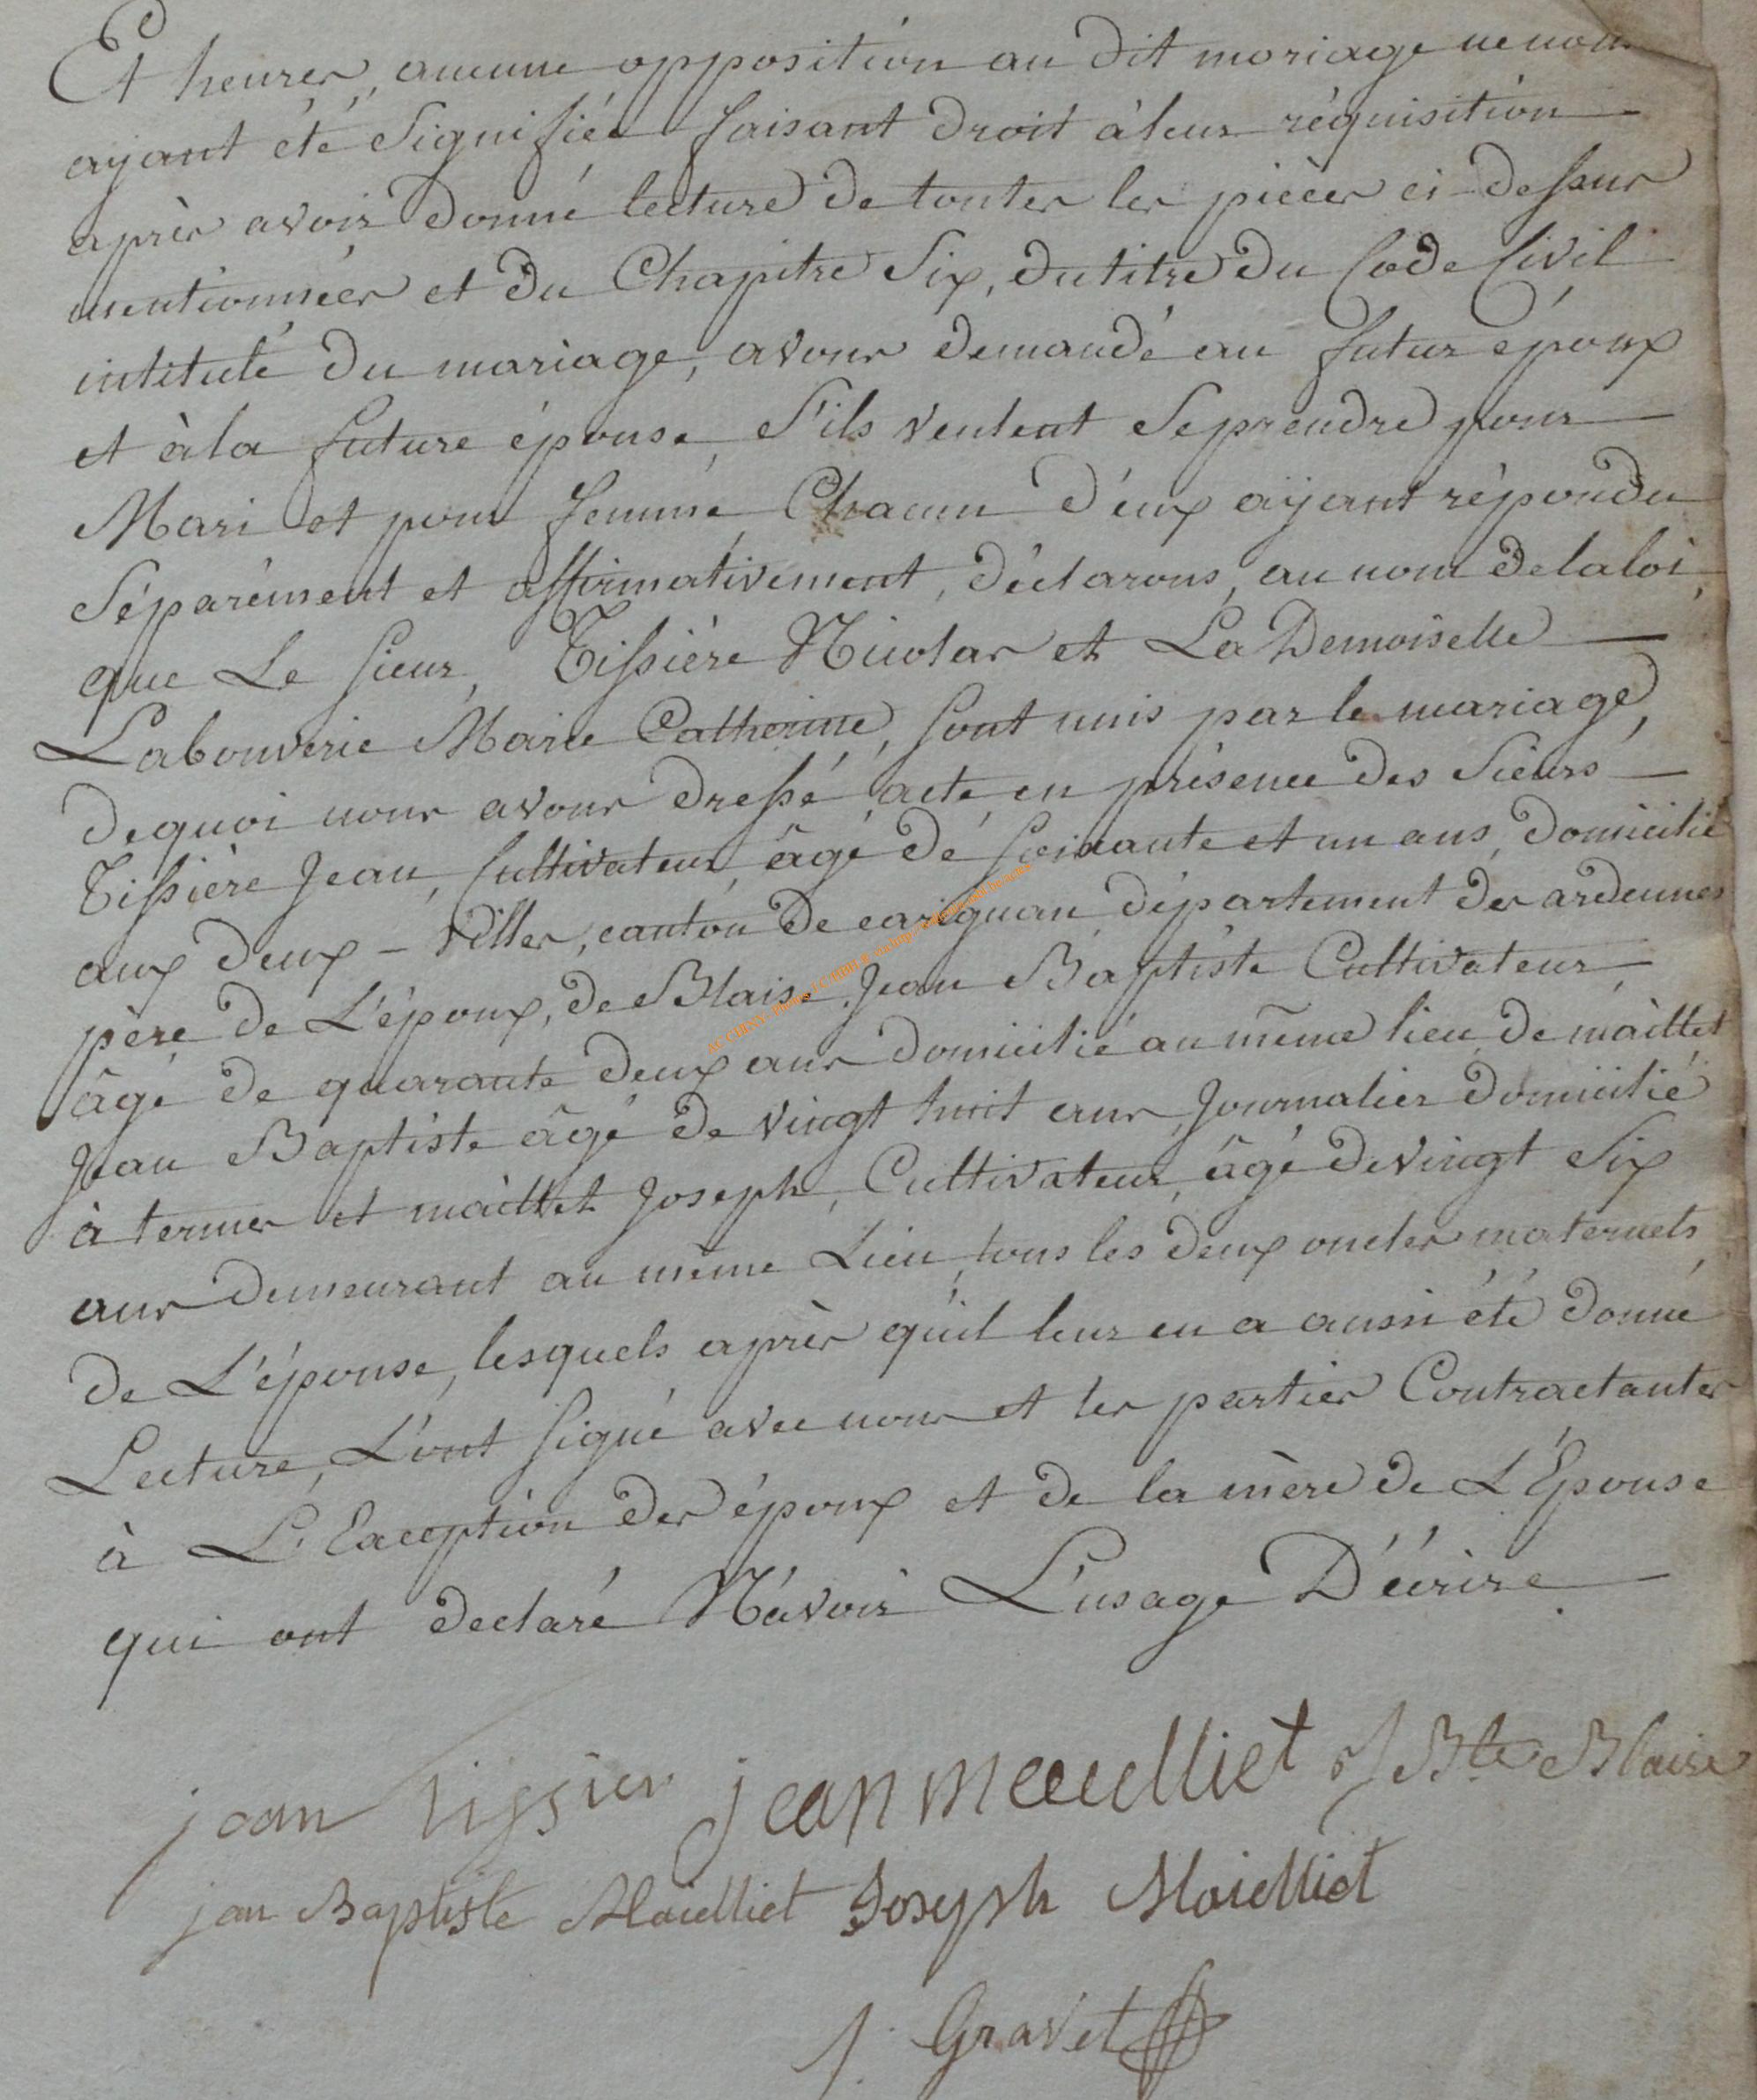 Et heures, aucune opposition au dit mariage ne nous
ayant été Signifiée faisant Droit à leur réquisition
après avoir Donné lecture De toutes les pièces ci-Dessus
mentionnées et Du Chapitre Six, Du titre Du Code Civil
intitulé Du mariage, avons Demandé au futur époux
et à la future épouse, S'ils veulent Se prendre pour
Mari et pour femme, Chacun D'eux ayant répondu
Séparément et affirmativement, Déclarons, au nom De la loi,
que Le Sieur, Tissière Nicolas et La Demoiselle
Labouverie Marie Catherine, Sont unis par le mariage,
De quoi nous avons Dressé acte en présence Des Sieurs
Tissière Jean, Cultivateur, âgé De Soixante et un ans, Domicilié
aux Deux-Villes, canton De carignan, Département Des ardennes
père De L'époux, De Blaise Jean Baptiste Cultivateur,
âgé De quarante Deux ans Domicilié au même lieu De maillet
Jean Baptiste âgé De vingt huit ans, Journalier Domicilié
à termes et maillet Joseph, Cultivateur, âgé De vingt Six
ans Demeurant au même Lieu, tous les Deux oncles maternels
De L'épouse, lesquels après qu'il leur en a aussi été Donné
Lecture, L'ont Signé avec nous et les parties Contractantes
à L'Exception Des époux et De la mère De L'Épouse
qui ont Declaré N'avoir L'usage D'écrire.
jean tissier jean maeulliet J Bte Blaise
jan Baptiste Maielliet Joseph Maielliet
J. Gravet